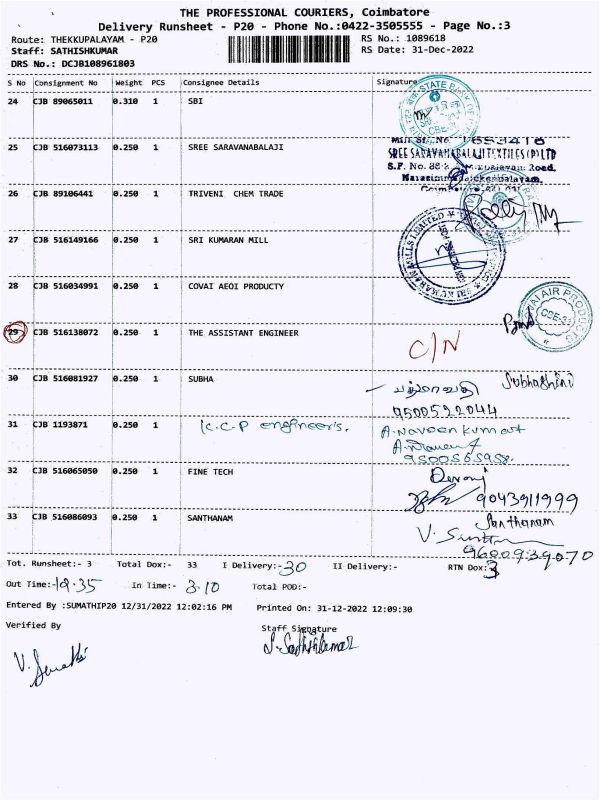 THE PROFESSIONAL COURIERS, Coimbatore
Delivery Runsheet - P20 - Phone No.:0422-3505555 - Page No.:3
Route: THEKKUPALAYAM - P20
RS No.: 1089618
Staff: SATHISHKUMAR
RS Date: 31-Dec-2022
DRS No.: DCJB108961803
S No Consignment No Weight PCS Consignee Details Signature
24 CJB 89065011 0.310 1 SBI
STATE BANK OF
25 CJB 516073113 0.250 1 SREE SARAVANABALAJI
SREE SARAVANABALAJI TEXTILES (P) LTD
26 CJB 89106441 0.250 1 TRIVENI CHEM TRADE
27 CJB 516149166 0.250 1 SRI KUMARAN MILL
28 CJB 516034991 0.250 1 COVAI AEOI PRODUCTY
AIR PRODUCTS
CBE-31
29 CJB 516138072 0.250 1 THE ASSISTANT ENGINEER C/N
30 CJB 516081927 0.250 1 SUBHA பத்மாவதி Subhashini
9500522044
31 CJB 1193871 0.250 1 K.C.P engineer's. A.Naveen Kumar
32 CJB 516065050 0.250 1 FINE TECH Devaraj
9043911999
33 CJB 516086093 0.250 1 SANTHANAM Santhanam
9600939070
Tot. Runsheet:- 3 Total Dox:- 33 I Delivery:- 30 II Delivery:- RTN Dox: 3
Out Time:- 12.35 In Time:- 3.10 Total POD:-
Entered By :SUMATHIP20 12/31/2022 12:02:16 PM Printed On: 31-12-2022 12:09:30
Verified By Staff Signature
V. Sumathi S. Sathishkumar